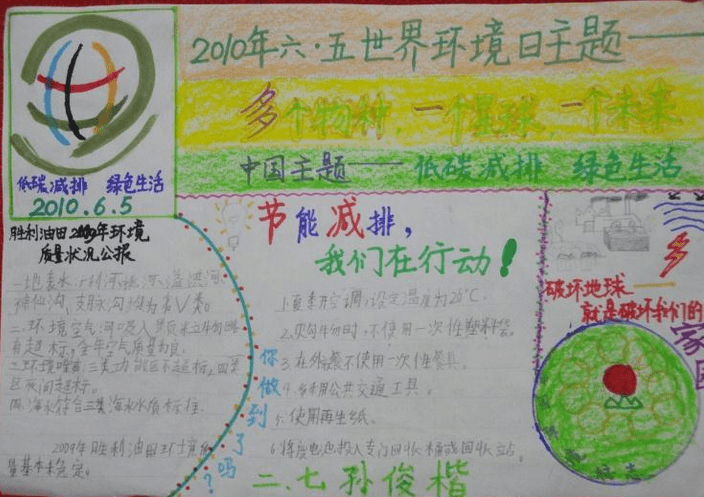 2010年六·五世界环境日主题——
多个物种,一个星球,一个未来
中国主题—— 低碳减排 绿色生活
低碳减排 绿色生活
2010.6.5
胜利油田2009年环境
质量状况公报
神仙沟、支脉沟均为劣V类。
有超标,全年空气质量为良。
区夜间超标。
四、海水符合三类海水水质标准
2009年胜利油田环境质
量基本稳定。
节能减排,
我们在行动!
1.夏季开空调,设定温度为26°C.
2.购物时,不使用一次性塑料袋.
3.在外就餐不使用一次性餐具.
4.多利用公共交通工具.
5.使用再生纸.
6.将废电池投入专门回收桶或回收站.
你做到了吗?
破坏地球——
就是破坏我们的
家园
二.七 孙俊楷